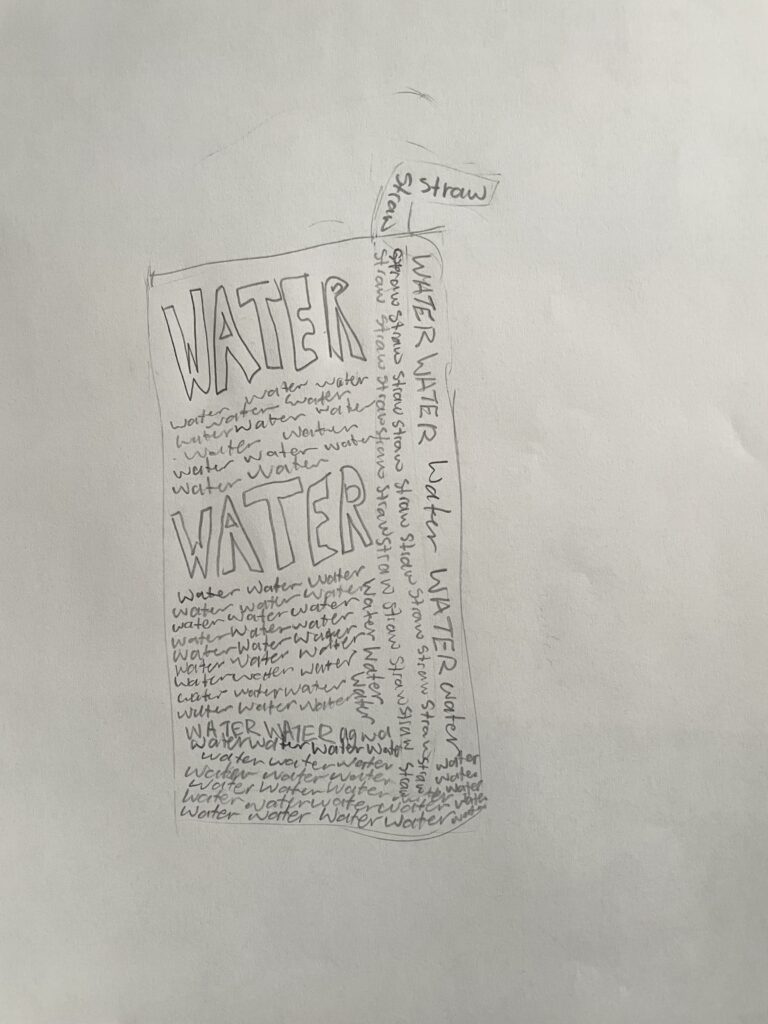 straw
straw
WATER
water water water
water water
water water water
Water Water
water water water
water water
WATER
Water Water Water
water water water
water water water
water water water
Water Water Water
water Water Water
Water water water
water water water
water water water
WATER WATER agua
water water water wate
water water water
water water water
Water Water Water
Water water water water
Water Water Water Water
water water water
straw straw straw straw straw straw straw straw straw
straw straw straw straw straw straw straw straw straw
WATER WATER Water WATER water
water
water
water
water